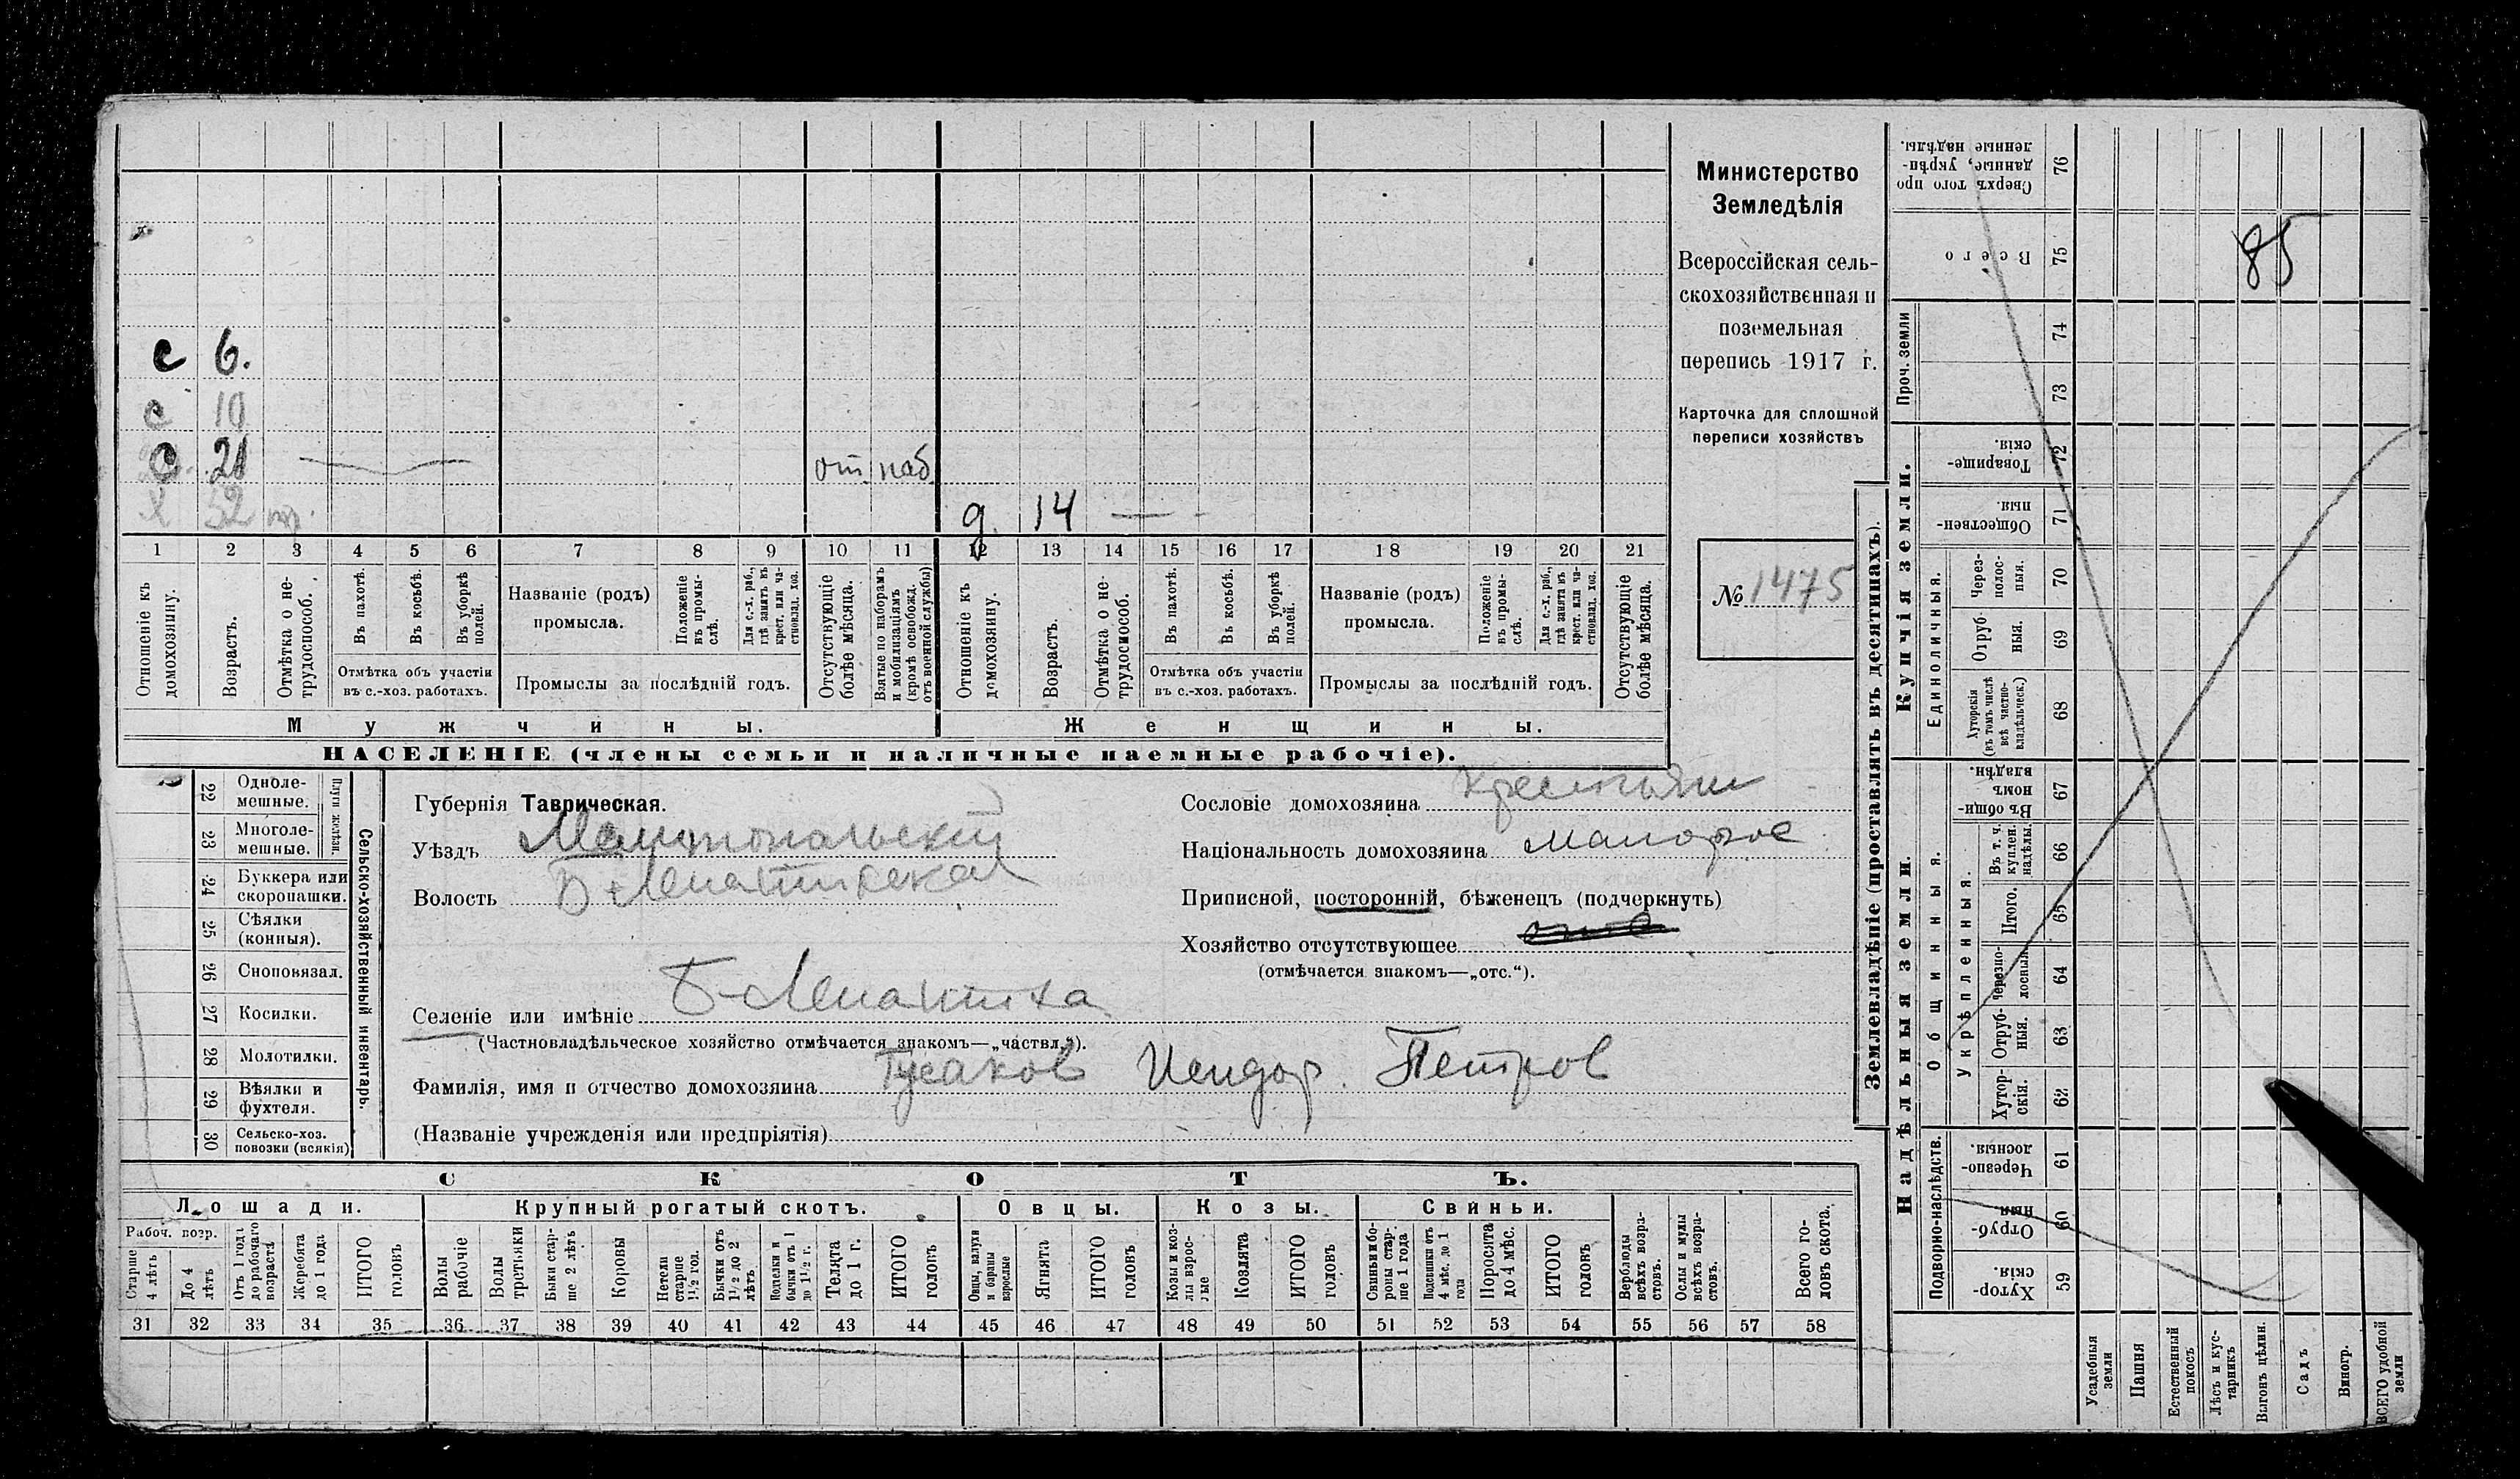 Министерство
Земледѣлія
Всероссійская сель-
скохозяйственная и
поземельная
перепись 1917 г.
Карточка для сплошной
переписи хозяйствъ
№ 1475
с 6.
с 10
с 21 от наб
х 52 нр.
д. 14 —
1 2 3 4 5 6 7 8 9 10 11 12 13 14 15 16 17 18 19 20 21
Отношеніе къ домохозяину.
Возрастъ.
Отмѣтка о не-трудоспособ.
Въ пахотѣ.
Въ косьбѣ.
Въ уборкѣ полей.
Отмѣтка объ участіи
въ с.-хоз. работахъ.
Названіе (родъ)
промысла.
Положеніе въ промы-слѣ.
Для с.-х. раб., гдѣ занятъ въ крест. или ча-стновлад. хоз.
Промыслы за послѣдній годъ.
Отсутствующіе болѣе мѣсяца.
Взятые по наборамъ и мобилизаціямъ (кромѣ освобожд. отъ военной службы)
Отношеніе къ домохозяину.
Возрастъ.
Отмѣтка о не-трудоспособ.
Въ пахотѣ.
Въ косьбѣ.
Въ уборкѣ полей.
Отмѣтка объ участіи
въ с.-хоз. работахъ.
Названіе (родъ)
промысла.
Положеніе въ промы-слѣ.
Для с.-х. раб., гдѣ занята въ крест. или ча-стновлад. хоз.
Промыслы за послѣдній годъ.
Отсутствующіе болѣе мѣсяца.
Мужчины.
Женщины.
НАСЕЛЕНІЕ (члены семьи и наличные наемные рабочіе).
22 Одноле-мешные.
23 Многоле-мешные.
Плуги желѣзн.
24 Буккера или скоропашки.
25 Сѣялки (конныя).
26 Сноповязал.
27 Косилки.
28 Молотилки.
29 Вѣялки и фухтеля.
30 Сельско-хоз. повозки (всякія)
Сельско-хозяйственный инвентарь.
Губернія Таврическая.
Уѣздъ Мелитопольскій
Волость Б-Лепатихская
Селеніе или имѣніе Б-Лепатиха
(Частновладѣльческое хозяйство отмѣчается знакомъ—„частвл.“).
Фамилія, имя и отчество домохозяина Гусаков Исидор. Петров
(Названіе учрежденія или предпріятія)
Сословіе домохозяина крестьян
Національность домохозяина малорос
Приписной, посторонній, бѣженецъ (подчеркнуть)
Хозяйство отсутствующее
(отмѣчается знакомъ—„отс.“).
СКОТЪ.
Лошади.
Крупный рогатый скотъ.
Овцы.
Козы.
Свиньи.
Рабоч. возр.
Старше 4 лѣтъ
До 4 лѣтъ
Отъ 1 года до рабочаго возраста
Жеребята до 1 года
ИТОГО головъ
Волы рабочіе
Волы третьяки
Быки стар-ше 2 лѣтъ
Коровы
Нетели старше 1½ год.
Бычки отъ 1½ до 2 лѣтъ
Подтелки и бычки отъ 1 до 1½ г.
Телята до 1 г.
ИТОГО головъ
Овцы, валухи и бараны взрослые
Ягнята
ИТОГО головъ
Козы и коз-лы взрос-лые
Козлята
ИТОГО головъ
Свиньи бо-ровы стар-ше 1 года
Подсвинки отъ 4 мѣс. до 1 года
Поросята до 4 мѣс.
ИТОГО головъ
Верблюды всѣхъ возра-стовъ.
Ослы и мулы всѣхъ возра-стовъ.
Всего го-ловъ скота.
31 32 33 34 35 36 37 38 39 40 41 42 43 44 45 46 47 48 49 50 51 52 53 54 55 56 57 58
Землевладѣніе (проставлять въ десятинахъ).
Сверхъ того про-данные, укрѣп-ленные надѣлы. 76
Всего 75
85
Проч. земли
74
73
Купчія земли.
Товарище-скія. 72
Обществен-ныя. 71
Единоличныя.
Через-полос-ныя. 70
Отруб-ныя. 69
Хуторскія (въ томъ числѣ всѣ частно-владѣльческ.) 68
Надѣльныя земли.
Общинныя.
Въ общи-номъ владѣн. 67
Укрѣпленныя.
Въ т. ч. куплен. надѣлы. 66
Итого. 65
Черезпо-лосныя. 64
Отруб-ныя. 63
Хутор-скія. 62
Подворно-наслѣдств.
Черезпо-лосныя 61
Отруб-ныя 60
Хутор-скія. 59
Усадебныя земли
Пашня
Естественный покосъ
Лѣсъ и кус-тарникъ
Выгонъ цѣлин.
Садъ
Виногр.
ВСЕГО удобной земли